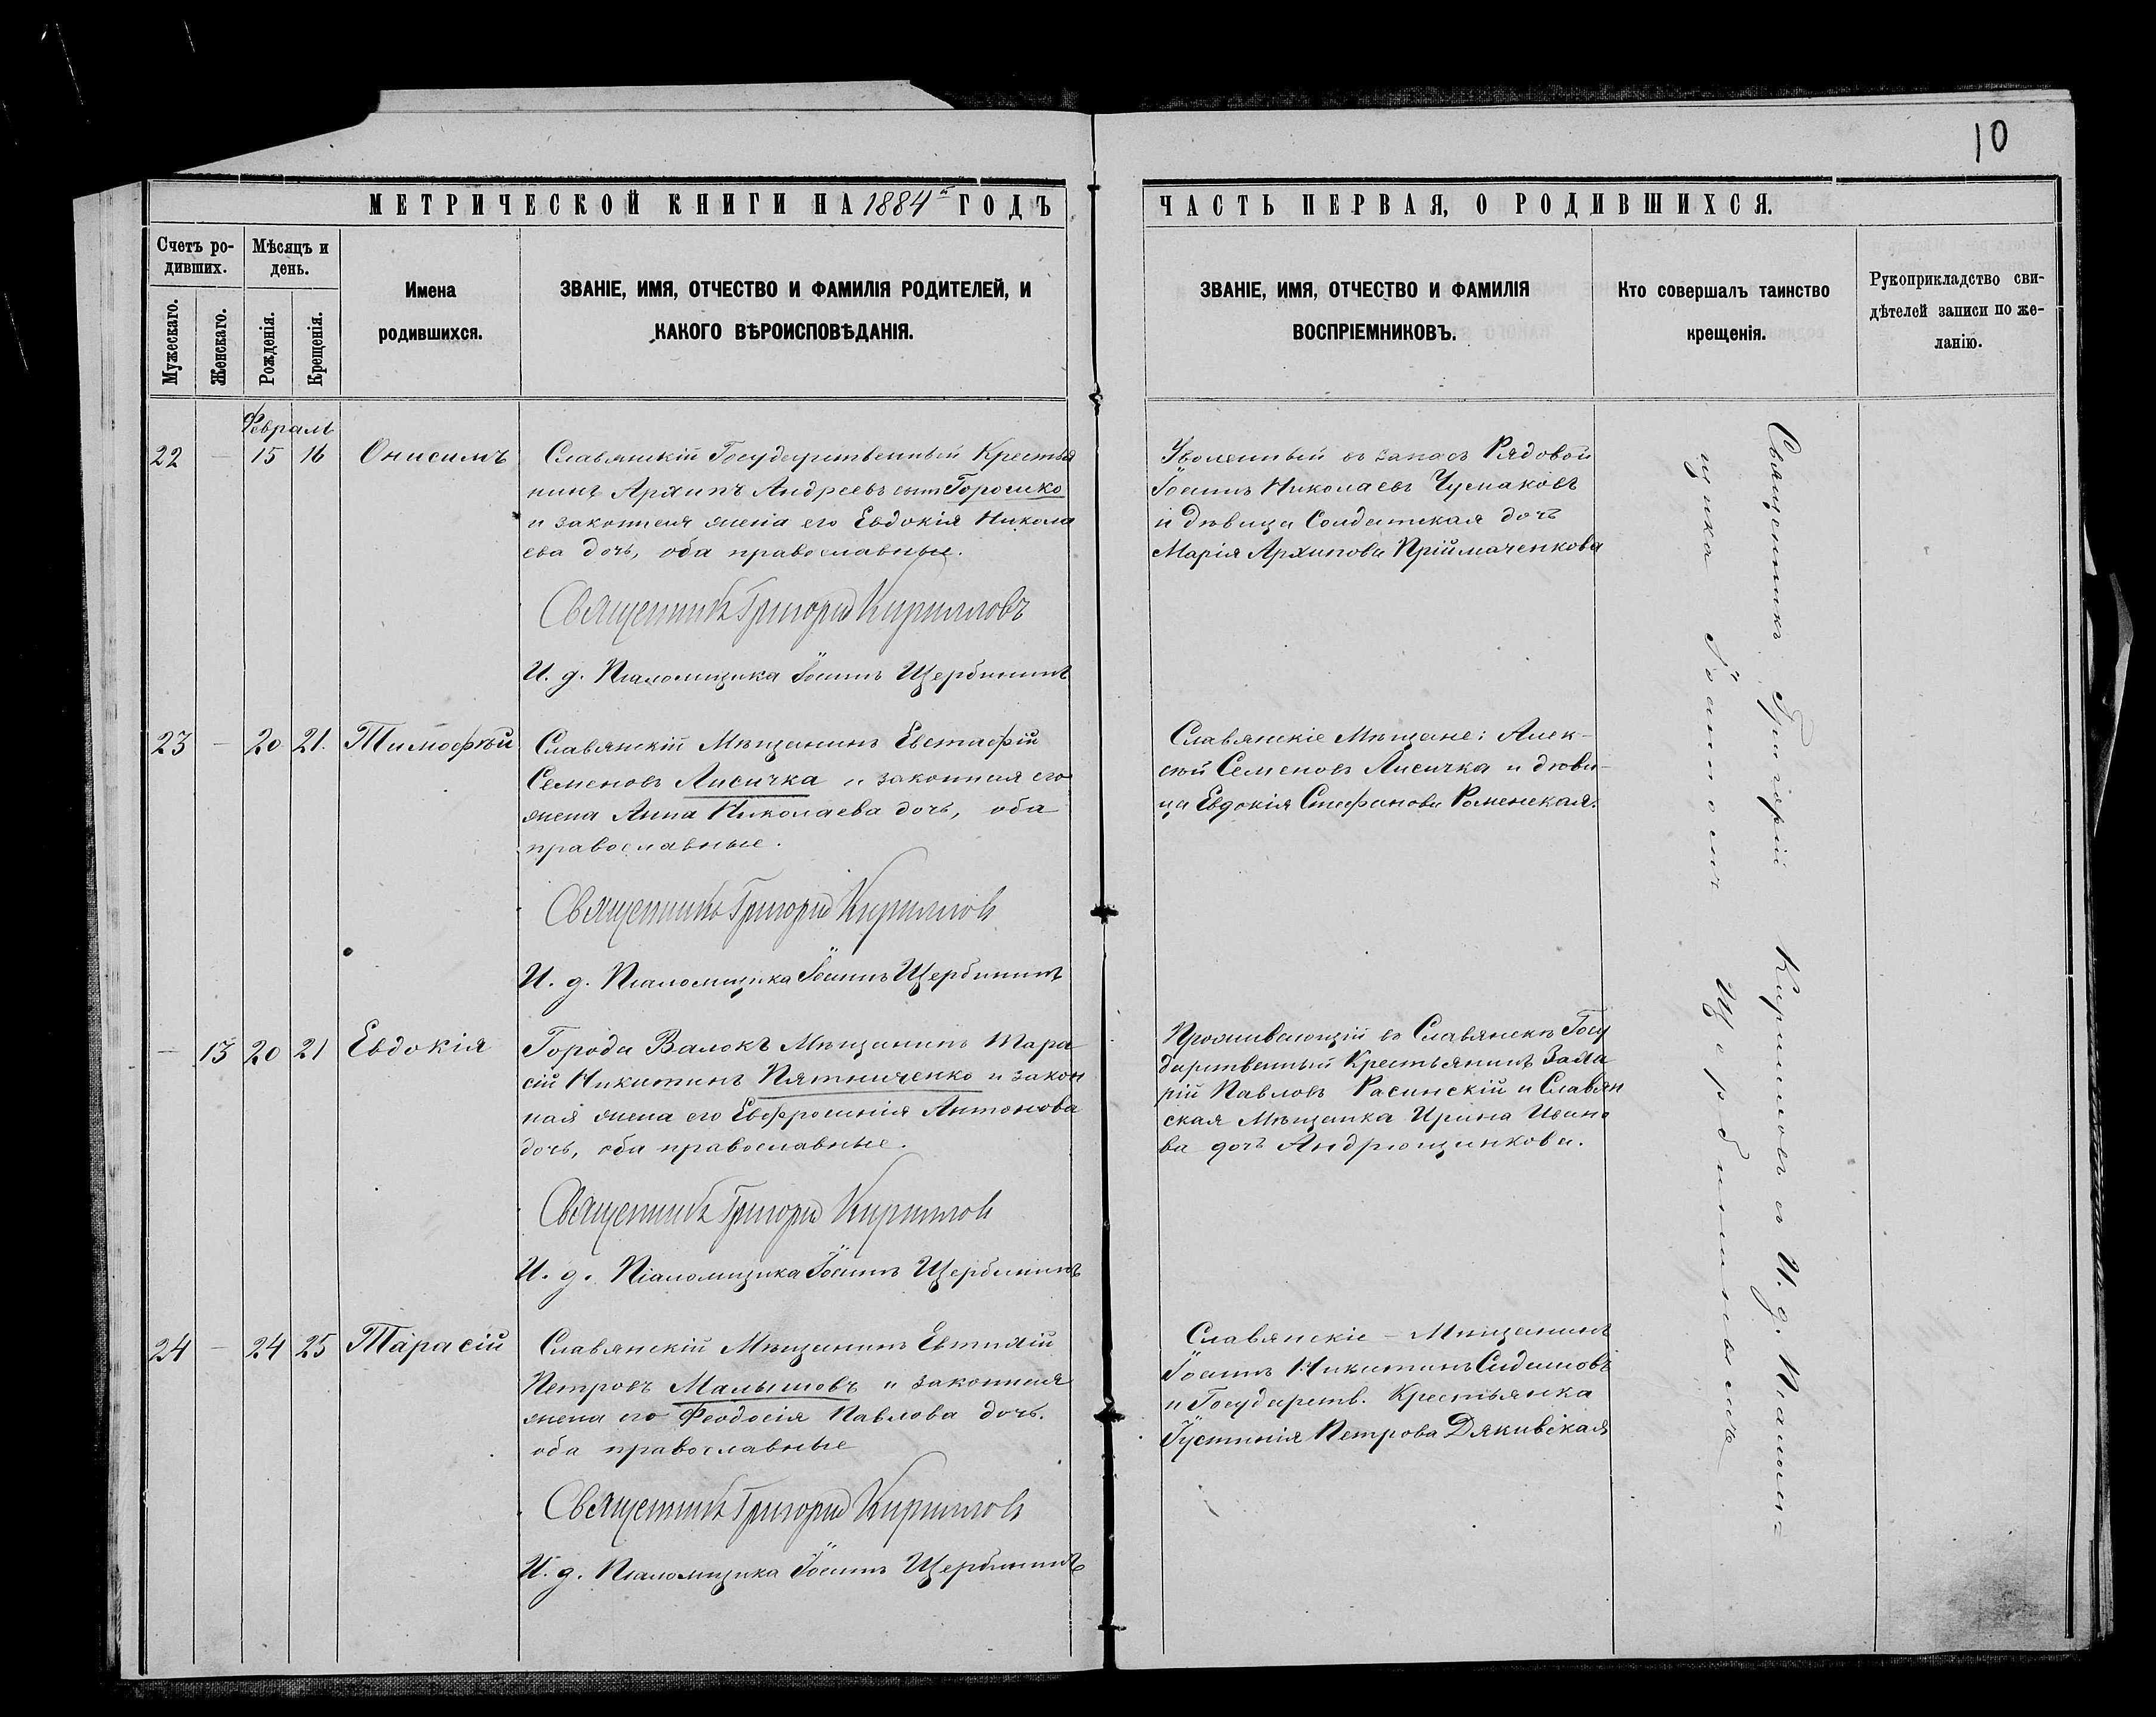 10
МЕТРИЧЕСКОЙ КНИГИ НА 1884й ГОДЪ
ЧАСТЬ ПЕРВАЯ, О РОДИВШИХСЯ.
Счетъ ро-
дившихъ.
Мужескаго.
Женскаго.
Мѣсяцъ и
день.
Рожденія.
Крещенія.
Имена
родившихся.
ЗВАНІЕ, ИМЯ, ОТЧЕСТВО И ФАМИЛІЯ РОДИТЕЛЕЙ, И
КАКОГО ВѢРОИСПОВѢДАНІЯ.
ЗВАНІЕ, ИМЯ, ОТЧЕСТВО И ФАМИЛІЯ
ВОСПРІЕМНИКОВЪ.
Кто совершалъ таинство
крещенія.
Рукоприкладство сви-
дѣтелей записи по же-
ланію.
Февраль
22 – 15 16 Онисимъ
Славянскій Государственный Крестья
нинъ Архипъ Андреевъ сынъ Горошко
и законная жена его Евдокія Никола
ева дочь, оба православные.
Священникъ Григорій Кирилловъ
И. д. Псаломщика Іоаннъ Щербининъ
Уволенный въ запасъ Рядовой
Іоаннъ Николаевъ Чумаковъ
и дѣвица Солдатская дочь
Марія Архипова Пріймаченкова
23 – 20 21. Тимоѳей
Славянскій Мѣщанинъ Евстафій
Семеновъ Лисичка и законная его
жена Анна Николаева дочь, оба
православные.
Священникъ Григорій Кирилловъ
И. д. Псаломщика Іоаннъ Щербининъ
Славянскіе Мѣщане: Алек-
сѣй Семеновъ Лисичка и дѣви-
ца Евдокія Стефанова Роменская.
– 13 20 21 Евдокія
Города Валокъ Мѣщанинъ Тара
сій Никитинъ Пятниченко и закон
ная жена его Евфросинія Антонова
дочь, оба православные.
Священникъ Григорій Кирилловъ
И. д. Псаломщика Іоаннъ Щербининъ
Проживающій въ Славянскѣ Госу
дарственный Крестьянинъ Заха
рій Павловъ Расинскій и Славян
ская Мѣщанка Ирина Ивано
ва дочь Андрющенкова.
24 – 24 25 Тарасій
Славянскій Мѣщанинъ Евтихій
Петровъ Малышовъ и законная
жена его Феодосія Павлова дочь.
оба православные
Священникъ Григорій Кирилловъ
И. д. Псаломщика Іоаннъ Щербининъ
Славянскіе – Мѣщанинъ
Іоаннъ Никитинъ
и Государств. Крестьянка
Іустинія Петрова
Священникъ Григорій Кирилловъ съ И. д. Псалом=
щика Іоанномъ Щербининымъ